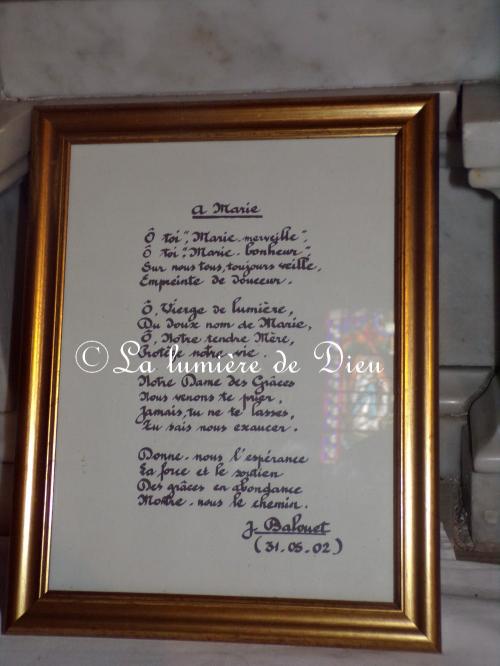 A Marie
Ô toi "Marie-merveille",
Ô toi "Marie-bonheur",
Sur nous tous, toujours veille,
Empreinte de douceur.
Ô, Vierge de lumière,
Du doux nom de Marie,
Ô, Notre tendre Mère,
Protège notre vie.
© La lumière de Dieu
Notre Dame des Grâces
Nous venons te prier,
Jamais, tu ne te lasses,
Tu sais nous exaucer.
Donne-nous l'espérance
La force et le soutien
Des grâces en abondance
Montre-nous le chemin.
J. Balouet
(31.05.02)